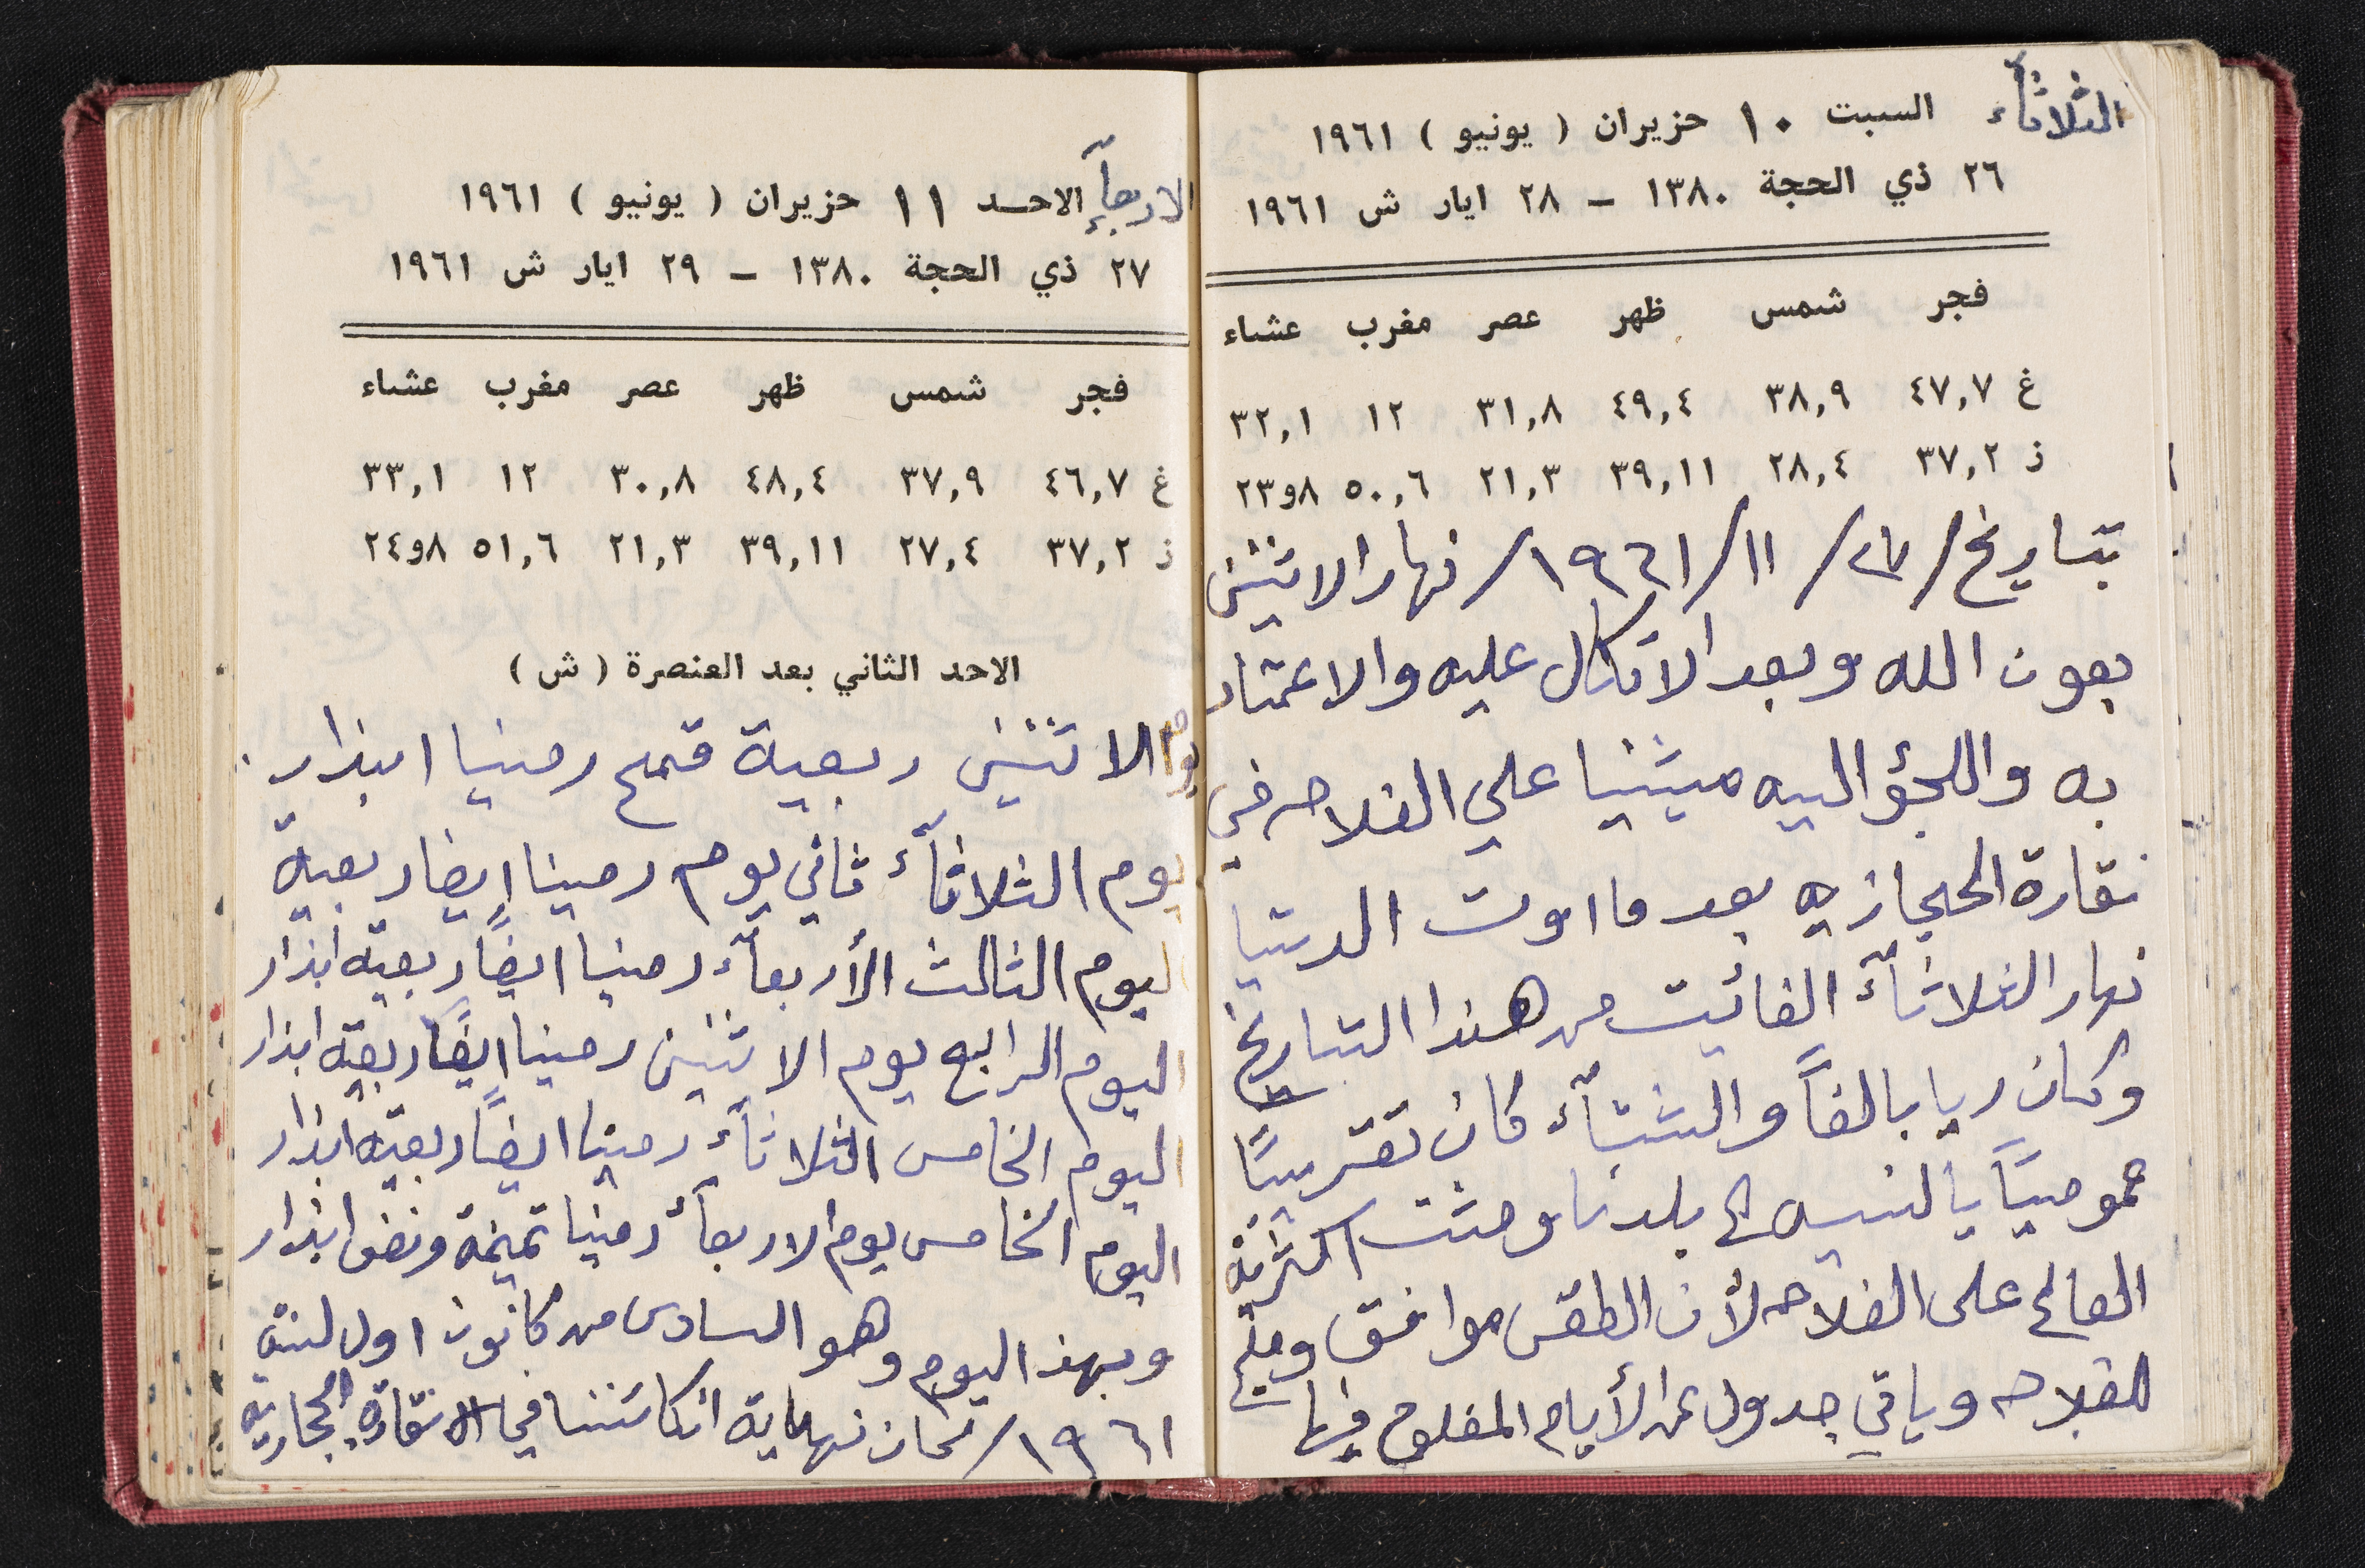 الثلاثآء السبت ١٠ حزيران ( يونيو ) ١٩٦١
٢٦ ذي الحجة ١٣٨٠ – ٢٨ ايار ش ١٩٦١
فجر شمس ظهر عصر مغرب عشاء
غ ٤٧,٧ ٣٨,٩ ٤٩,٤ ٣١,٨ ١٢ ٣٢,١
ذ ٣٧,٢ ٢٨,٤ ٣٩,١١ ٢١,٣ ٥٠,٦ ٨و٢٣
بتاريخ / ٢٧ / ١١ / ١٩٦١ / نهار الاثنين
بعون الله وبعد الاتكال عليه والاعتماد
به واللجؤ اليه ميشنا على الفلاحه في
نقارة الحجازيه بعد ما اوت الدنيا
نهار الثلاثآء الفائت من هذا التاريخ
وكان ريا بالغاً والشتآء كان تقريبًا
عموميًا بالنسبه الى بلدنا ومشت اكثرية
العالم على الفلاحه لأن الطقس موافق ومليح
للفلاحه وباقي جدول عن الأيام المفلوح فيها
الاربعآء الاحد ١١ حزيران ( يونيو ) ١٩٦١
٢٧ ذي الحجة ١٣٨٠ – ٢٩ ايار ش ١٩٦١
فجر شمس ظهر عصر مغرب عشاء
غ ٤٦,٧ ٣٧,٩ ٤٨,٤ ٣٠,٨ ١٢ ٣٣,١
ذ ٣٧,٢ ٢٧,٤ ٣٩,١١ ٢١,٣ ٥١,٦ ٨و٢٤
الاحد الثاني بعد العنصرة ( ش )
يوم الاثنين ربعية قمح رمينا ابذار
يوم الثلاثآء ثاني يوم رمينا ايضا ربعية
اليوم الثالث الأربعآء رمينا ايضًا ربعيه ابذار
اليوم الرابع يوم الاثنين رمينا ايضًا ربعيه ابذار
اليوم الخامس الثلاثآء رمينا ايضًا ربعيه ابذار
اليوم الخامس يوم الاربعآء رمينا ثمينه ونصف ابذار
وبهذا اليوم وهو السادس من كانون اول لسنة
١٩٦١ / كان نهاية في نقارة الحجازيه